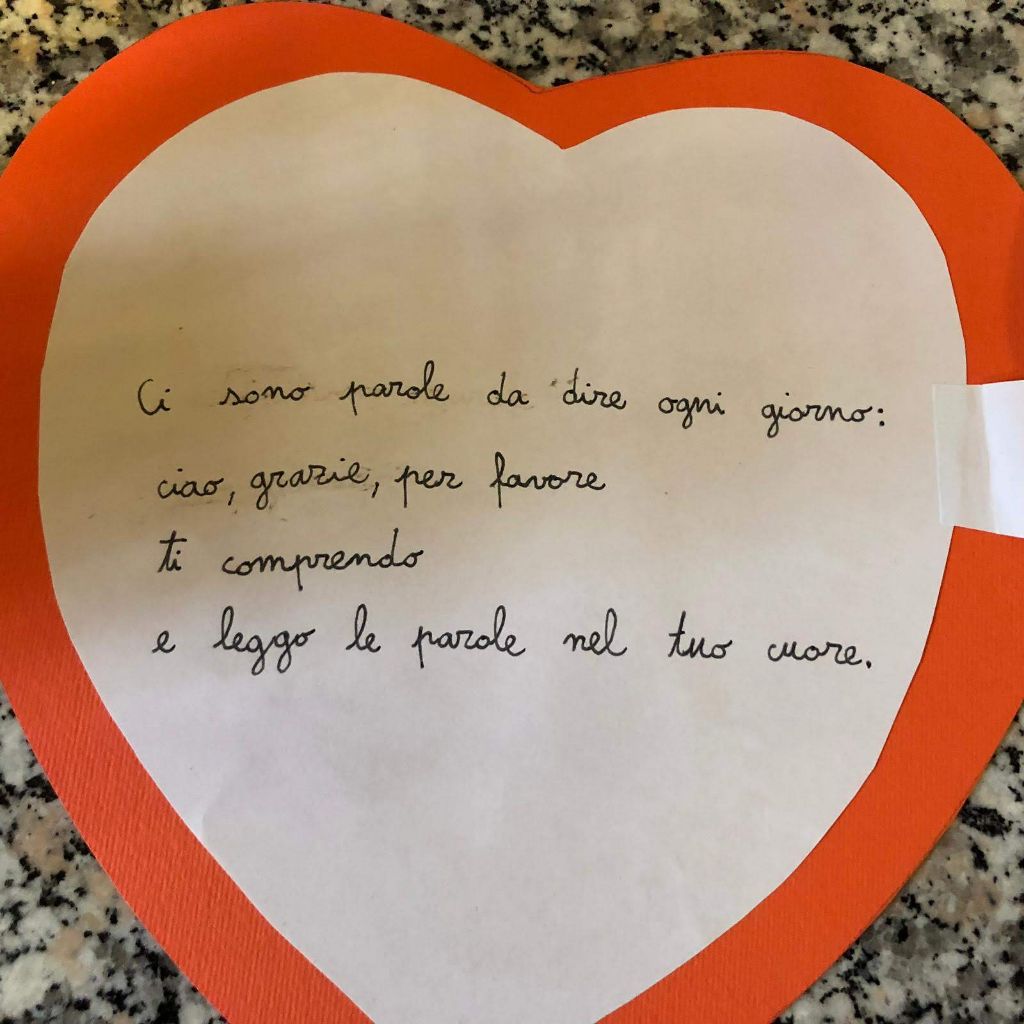 Ci sono parole da dire ogni giorno:
ciao, grazie, per favore
ti comprendo
e leggo le parole nel tuo cuore.